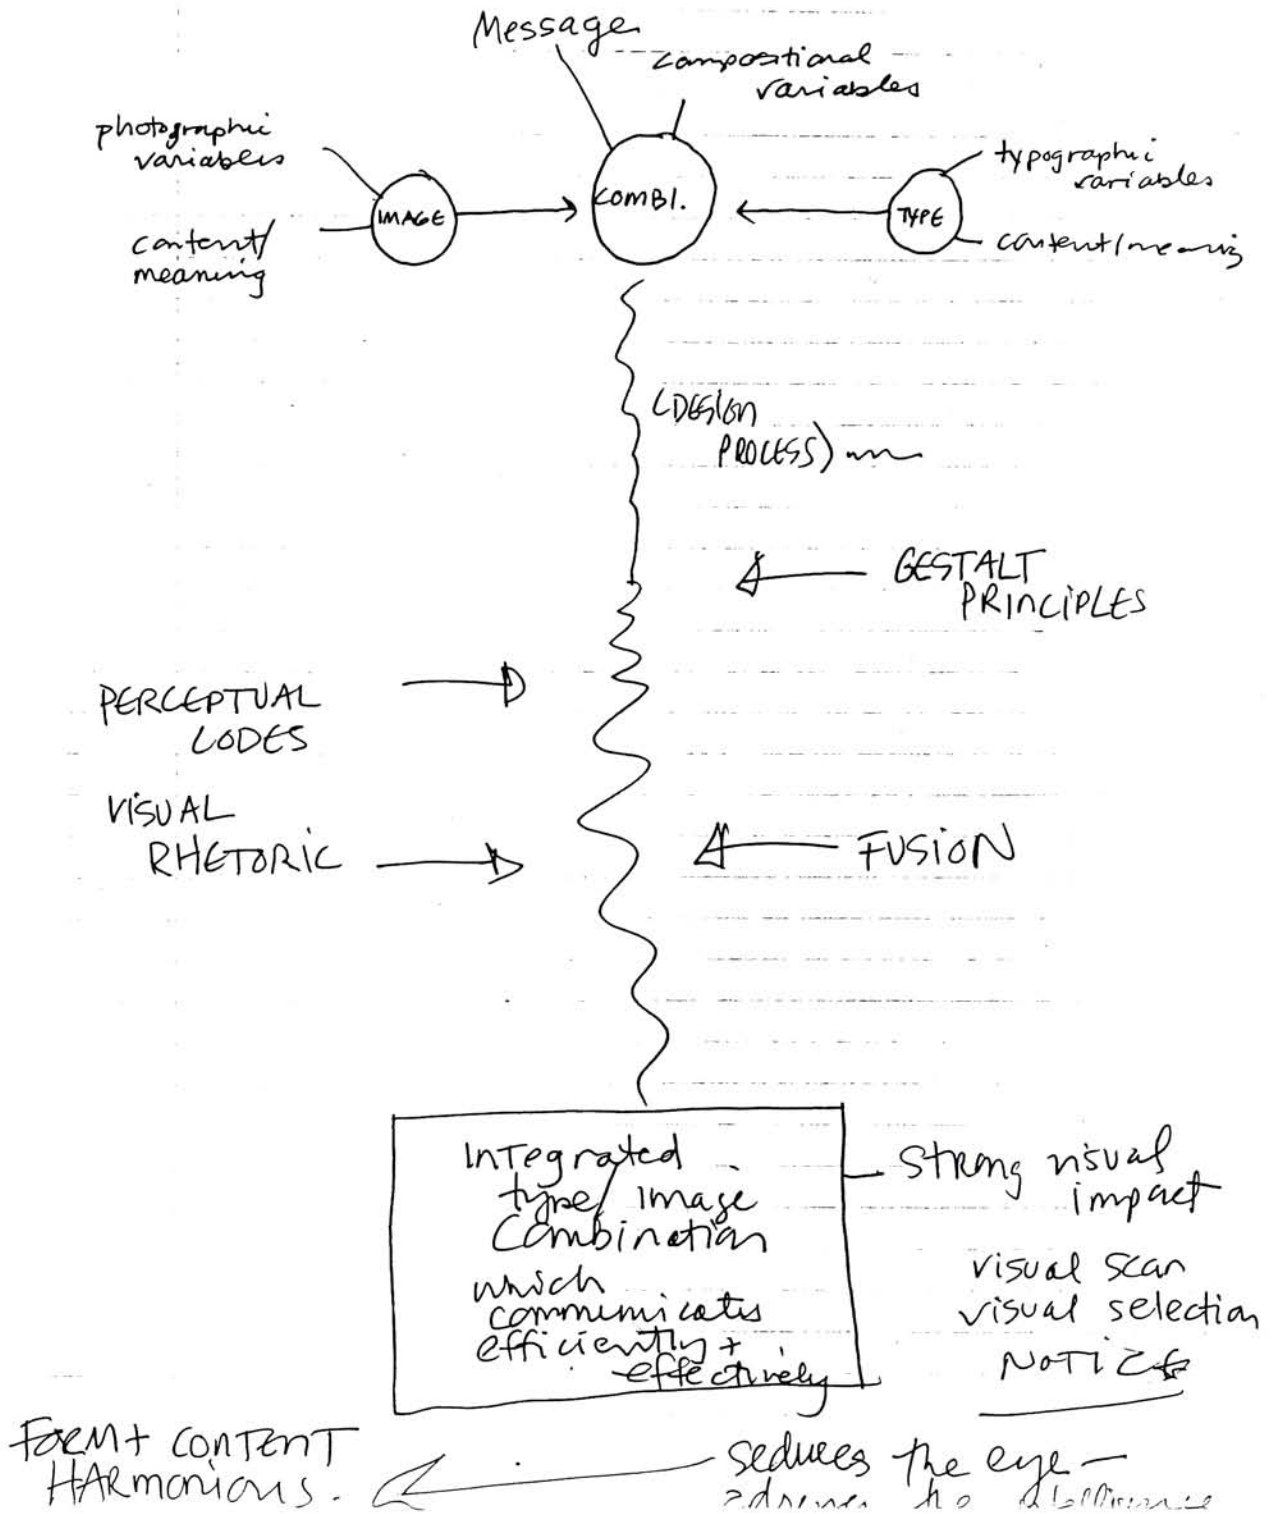 Message
compositional
variables
photographic
variables
content/
meaning
IMAGE
COMBI.
TYPE
typographic
variables
content/meaning
(DESIGN
PROCESS)
GESTALT
PRINCIPLES
PERCEPTUAL
CODES
VISUAL
RHETORIC
FUSION
INTegrated
type/image
Combination
which
communicates
efficiently +
effectively
Strong visual
impact
visual scan
visual selection
NOTICE
FORM + CONTENT
HARmonious.
seduces the eye —